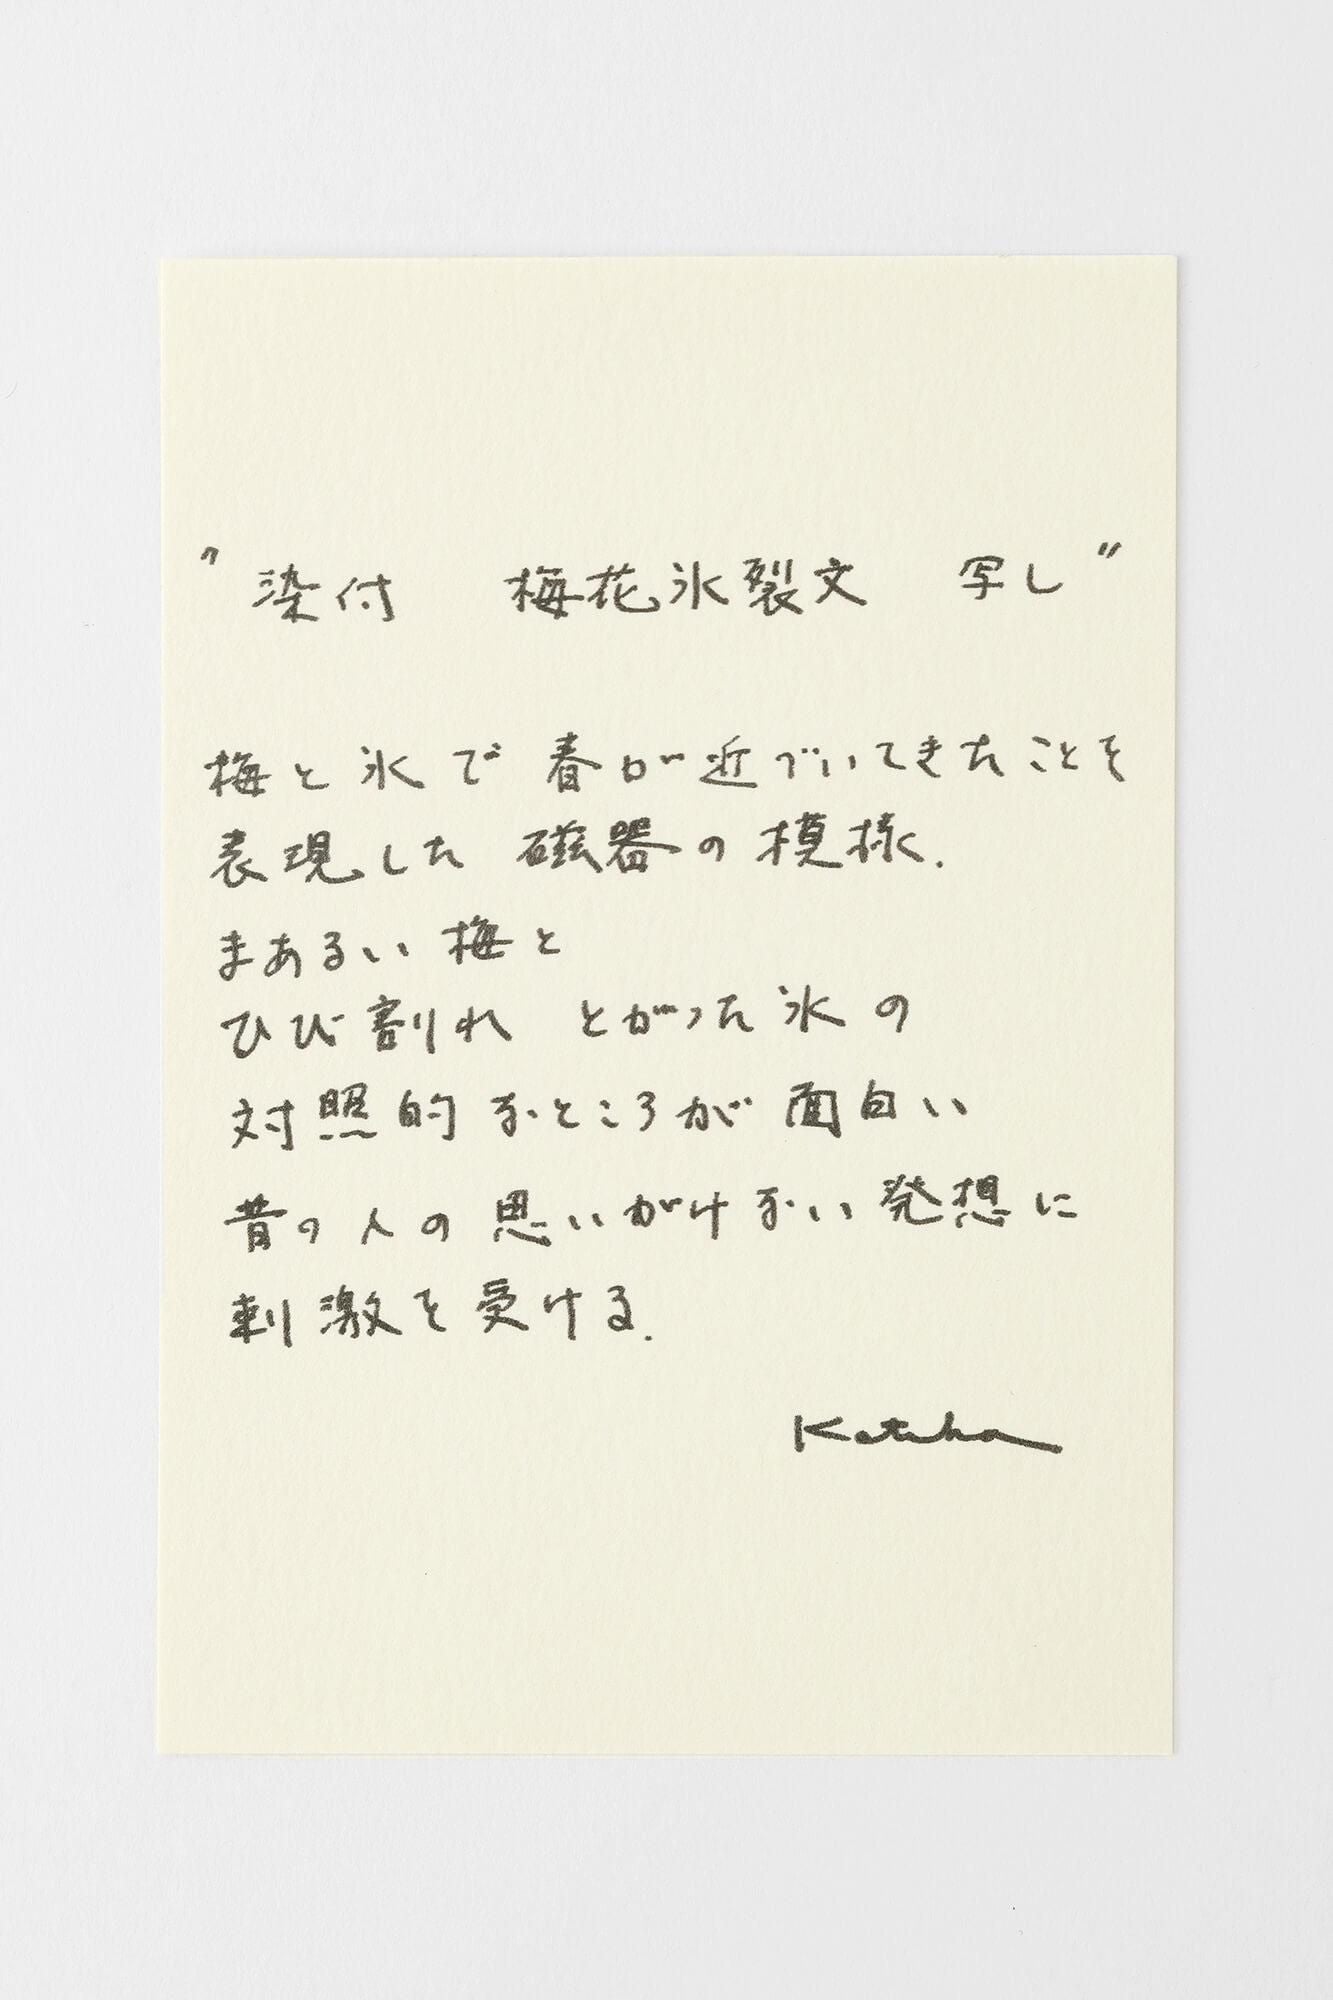 "染付　梅花氷裂文　写し"
梅と氷で春が近づいてきたことを
表現した磁器の模様.
まあるい梅と
ひび割れ とがった氷の
対照的なところが面白い
昔の人の思いがけない発想に
刺激を受ける.